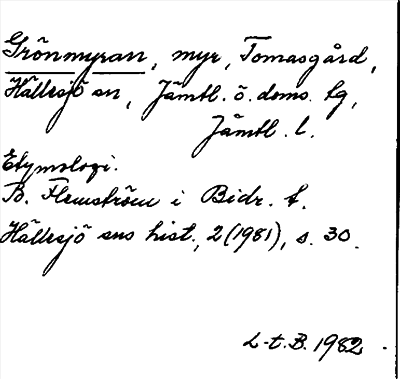 Grönmyran, myr, Tomasgård,
Hällesjö sn, Jämtl. ö. doms. tg,
Jämtl. l.
Etymologi.
B. Flemström i Bidr. t.
Hällesjö sns hist., 2 (1981), s. 30.
L-t.B. 1982